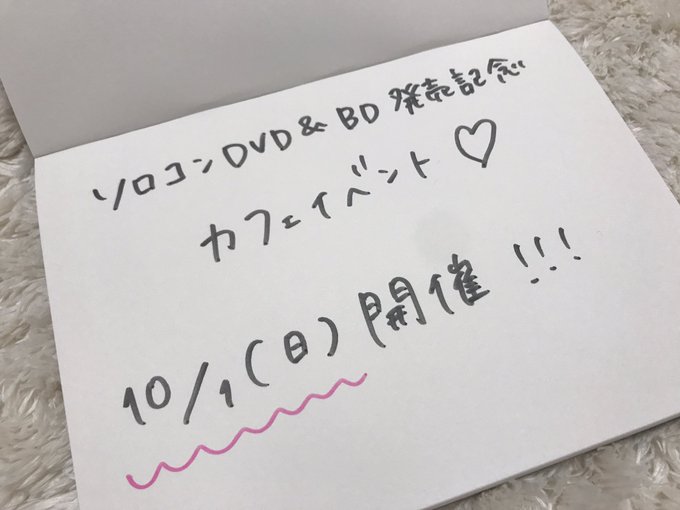 ソロコンDVD&BD発売記念
カフェイベント♡
10/1(日)開催!!!